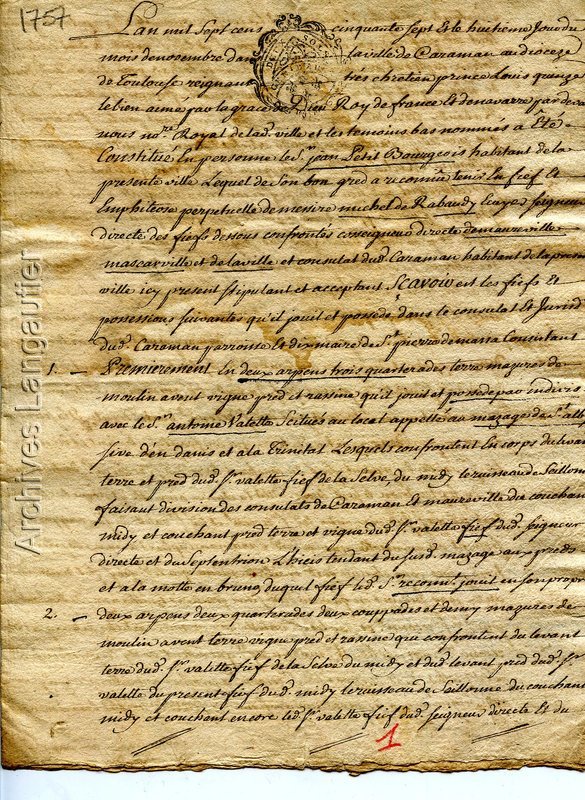 1757
L'an mil Sept Cens cinquante Sept Et le huitieme Jour du
mois de novembre dans la ville de Caraman au dioceze
de Toulouse reignant tres chrétien prince Louis quinze
le bien aimé par la grace de Dieu Roy de france Et de navarre par devant
nous nore Royal de lad. ville et les temoins bas nommés a Eté
Constitué En personne le Sr. jean Petit Bourgeois habitant de la
presente ville Lequel de Son bon gred a reconnu tenir En fief Et
Emphiteose perpetuelle de messire michel de Rabaudy Seigneur
directe des fiefs dessous confrontés coseigneur directe de maureville
mascarville et de la ville et consulat dud. Caraman habitant de la presente
ville icy present stipulant et acceptant Scavoir est les fiefs Et
possessions suivantes qu'il jouit et possede dans le consulat Et Jurid.
dud. Caraman parroisse Et dixmaire de St. pierre de Consistant
1. — Premierement En deux arpens trois quarterades terre mazures de
moulin avent vigne pred et rassine qu'il jouit et possede par indivis
avec le Sr. antoine Valette Scitués au local appellé au mazage de
sive d'en danis et a la Trinitat Lesquels confrontent En corps du levant
terre et pred dud. Sr. valette fief de la Selve, du midy le ruisseau de Seillonne
faisant division des consulats de Caraman Et maureville du couchant
midy et couchant pred terre et vigne dud. Sr. valette fief dud. Seigneur
directe et du Septentrion tendant du susd. mazage aux preds
et a la motte en bruno duquel fief led. Sr. reconnt. jouit en son propre
2. — deux arpens deux quarterades deux couppades et demy mazures de
moulin avent terre vigne pred et rassine qui confrontent du levant
terre dud. Sr. valette fief de la Selve du midy et dud. levant pred dud. Sr.
valette du present fief dud. midy le ruisseau de Seillonne du couchant
midy et couchant encore led. Sr. valette fief dud. Seigneur directe Et du
1
Archives Langautier